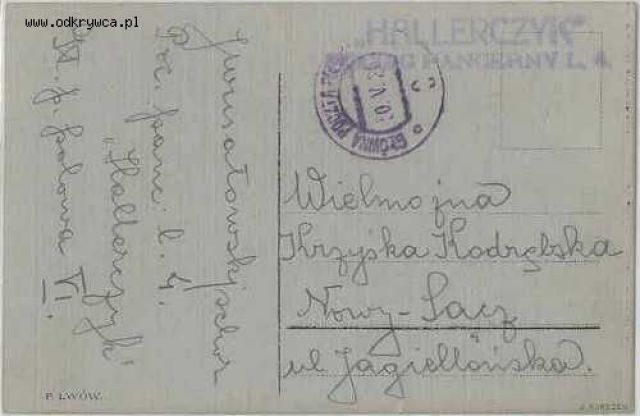 www.odkrywca.pl
„HALLERCZYK”
PANCERNY L. 4.
GŁÓWNA POCZTA
Poc. panc. l. 4.
„Hallerczyk”
p. polowa VI.
Wielmożna
Krzyśka Kodrębska
Nowy-Sącz
ul Jagiellońska.
P. LWÓW.